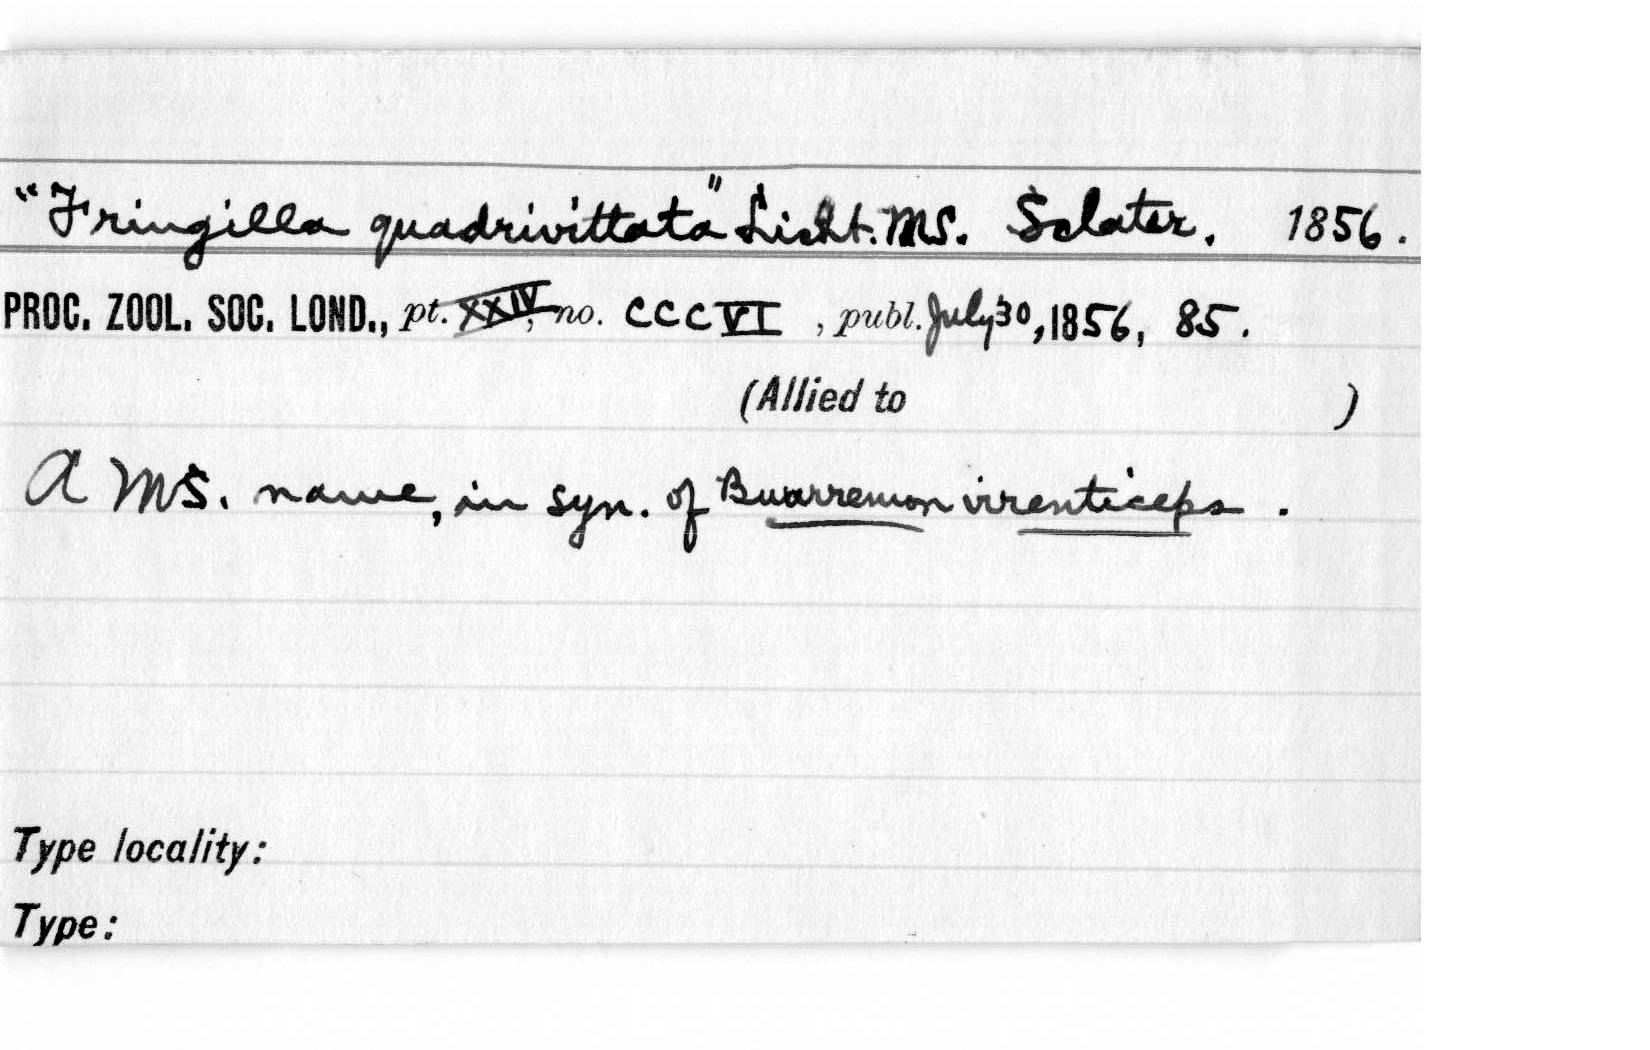 "Fringilla quadrivittata" Licht. MS. Sclater. 1856.
PROC. ZOOL. SOC. LOND., pt. XXIV, no. CCCVI , publ. July 30, 1856, 85.
(Allied to )
A MS. name, in syn. of Buarremon virenticeps.
Type locality:
Type: